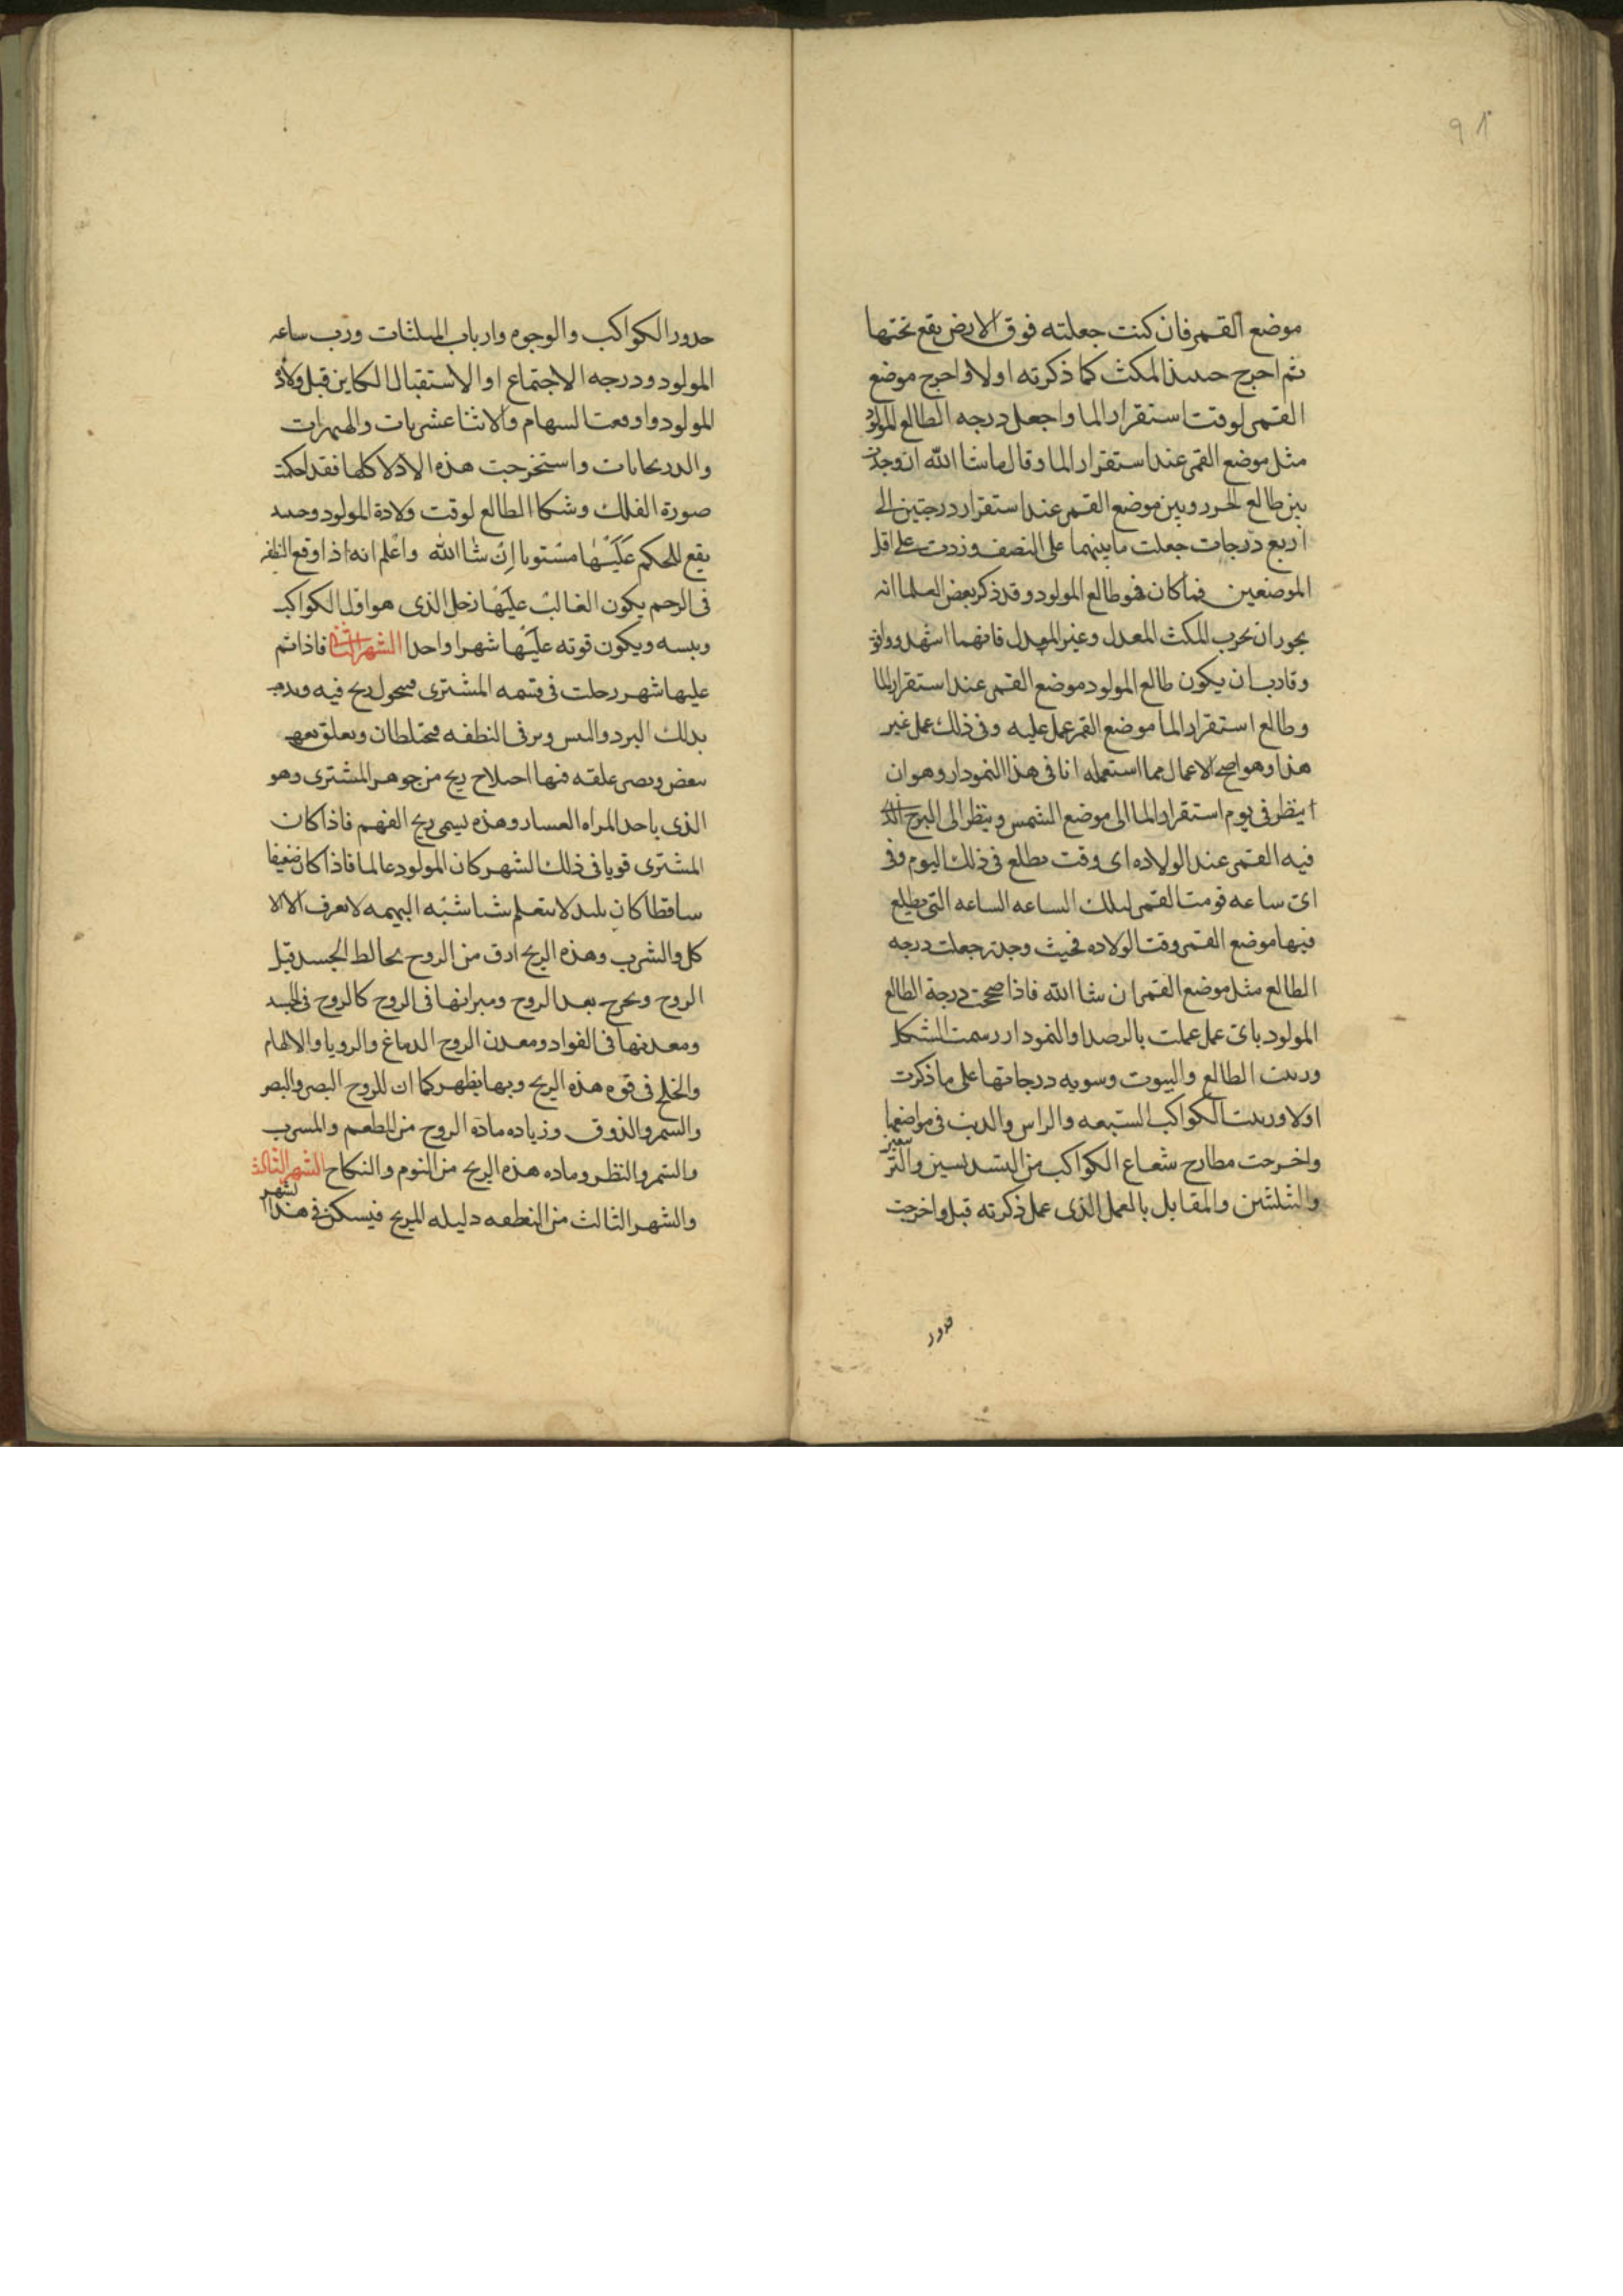 91
موضع القمر فان كنت جعلته فوق الارض يقع تحتها
ثم اخرج حينئذ المكث كما ذكرته اولا واخرج موضع
القمر لوقت استقرار الما واجعل درجه الطالع للمولود
مثل موضع القمر عند استقرار الما وقال ما شا الله ان وجدت
بين طالع الحرر وبين موضع القمر عند استقرار درجتين الى
اربع درجات جعلت ما بينهما على النصف وزدت على اقل
الموضعين فما كان فهو طالع المولود وقد ذكر بعض العلما انه
يجوز ان نجرب المكث المعدل وغير المعدل فانهما اشهد ووافق
وقارب ان يكون طالع المولود موضع القمر عند استقرار الما
وطالع استقرار الما موضع القمر عمل عليه وفى ذلك عمل غير
هذا وهو اصح الاعمال مما استعمله انا فى هذا النمودار وهو ان
انظر فى يوم استقرار الما الى موضع الشمس وينظر الى البرج الذى
فيه القمر عند الولاده اى وقت يطلع فى ذلك اليوم وفى
اى ساعه قومت القمر لتلك الساعه الساعه التى يطلع
فيها موضع القمر وقت الولاده فحيث وجدته جعلت درجه
الطالع مثل موضع القمر ان شا الله فاذا صححت درجة الطالع
المولود باى عمل عملت بالرصد او النمودار رسمت الشكل
ورتبت الطالع والبيوت وسويه درجاتها على ما ذكرت
اولا ورتبت الكواكب السبعه والراس والذنب فى مواضعها
واخرجت مطارح شعاع الكواكب من التسديسين والتربيعين
والتثليثين والمقابل بالعمل الذى عمل ذكرته قبل واخرجت
حدور الكواكب والوجوه وارباب المثلثات ورب ساعه
المولود ودرجه الاجتماع او الاستقبال الكاين قبل ولاد
المولود واوقعت السهام والاثنا عشريات والهيمرات
والدريحانات واستخرجت هذه الادلا كلها فقد احكمت
صورة الفلك وشكل الطالع لوقت ولادة المولود وحينئذ
يقع للحكم عليها مستويا ان شا الله واعلم انه اذا وقع النطفه
فى الرحم يكون الغالب عليها زحل الذى هو اول الكواكب
ويبسه ويكون قوته عليها شهرا واحدا الشهر الثانى فاذا تم
عليها شهر رحلت فى قسمه المشترى فيتحول ريح فيه ويذهب
بذلك البرد واليبس ويرفى النطفه فيختلطان ويعلق بعضه
ببعض ويصير علقه فيها اختلاج ريح من جوهر المشترى وهو
الذى ياخذ المراه العسار وهذه يسمى ريح الفهم فاذا كان
المشترى قويا فى ذلك الشهر كان المولود عالما فاذا كان ضعيفا
ساقطا كان بليد لا يتعلم شيا شبه البهيمه لا يعرف الا الا
كل والشرب وهذه الريح ادق من الروح يخالط الجسد قبل
الروح ويخرج بعد الروح وميزانها فى الروح كالروح فى الجسد
ومعدنها فى الفواد ومعدن الروح الدماغ والرويا والالهام
والخلج فى قوه هذه الريح وبها يظهر كما ان للروح البصر والبصر
والسمر والذوق وزياده مادة الروح من المطعم والمشرب
والشم والنظر وماده هذه الريح من النوم والنكاح الشهر الثالث
والشهر الثالث من النطفه دليله المريخ فيسكن فى هذا الشهر